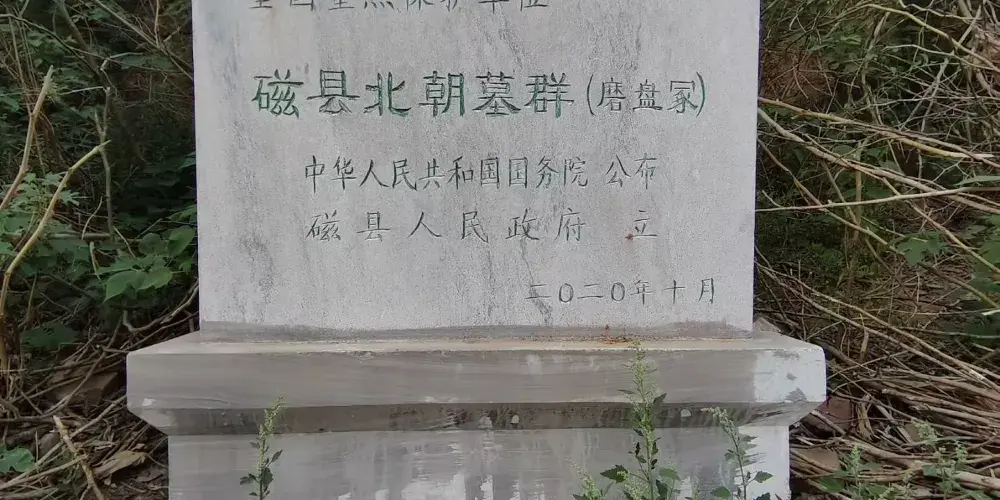 全国重点保护单位
磁县北朝墓群(磨盘冢)
中华人民共和国国务院 公布
磁县人民政府 立
二〇二〇年十月